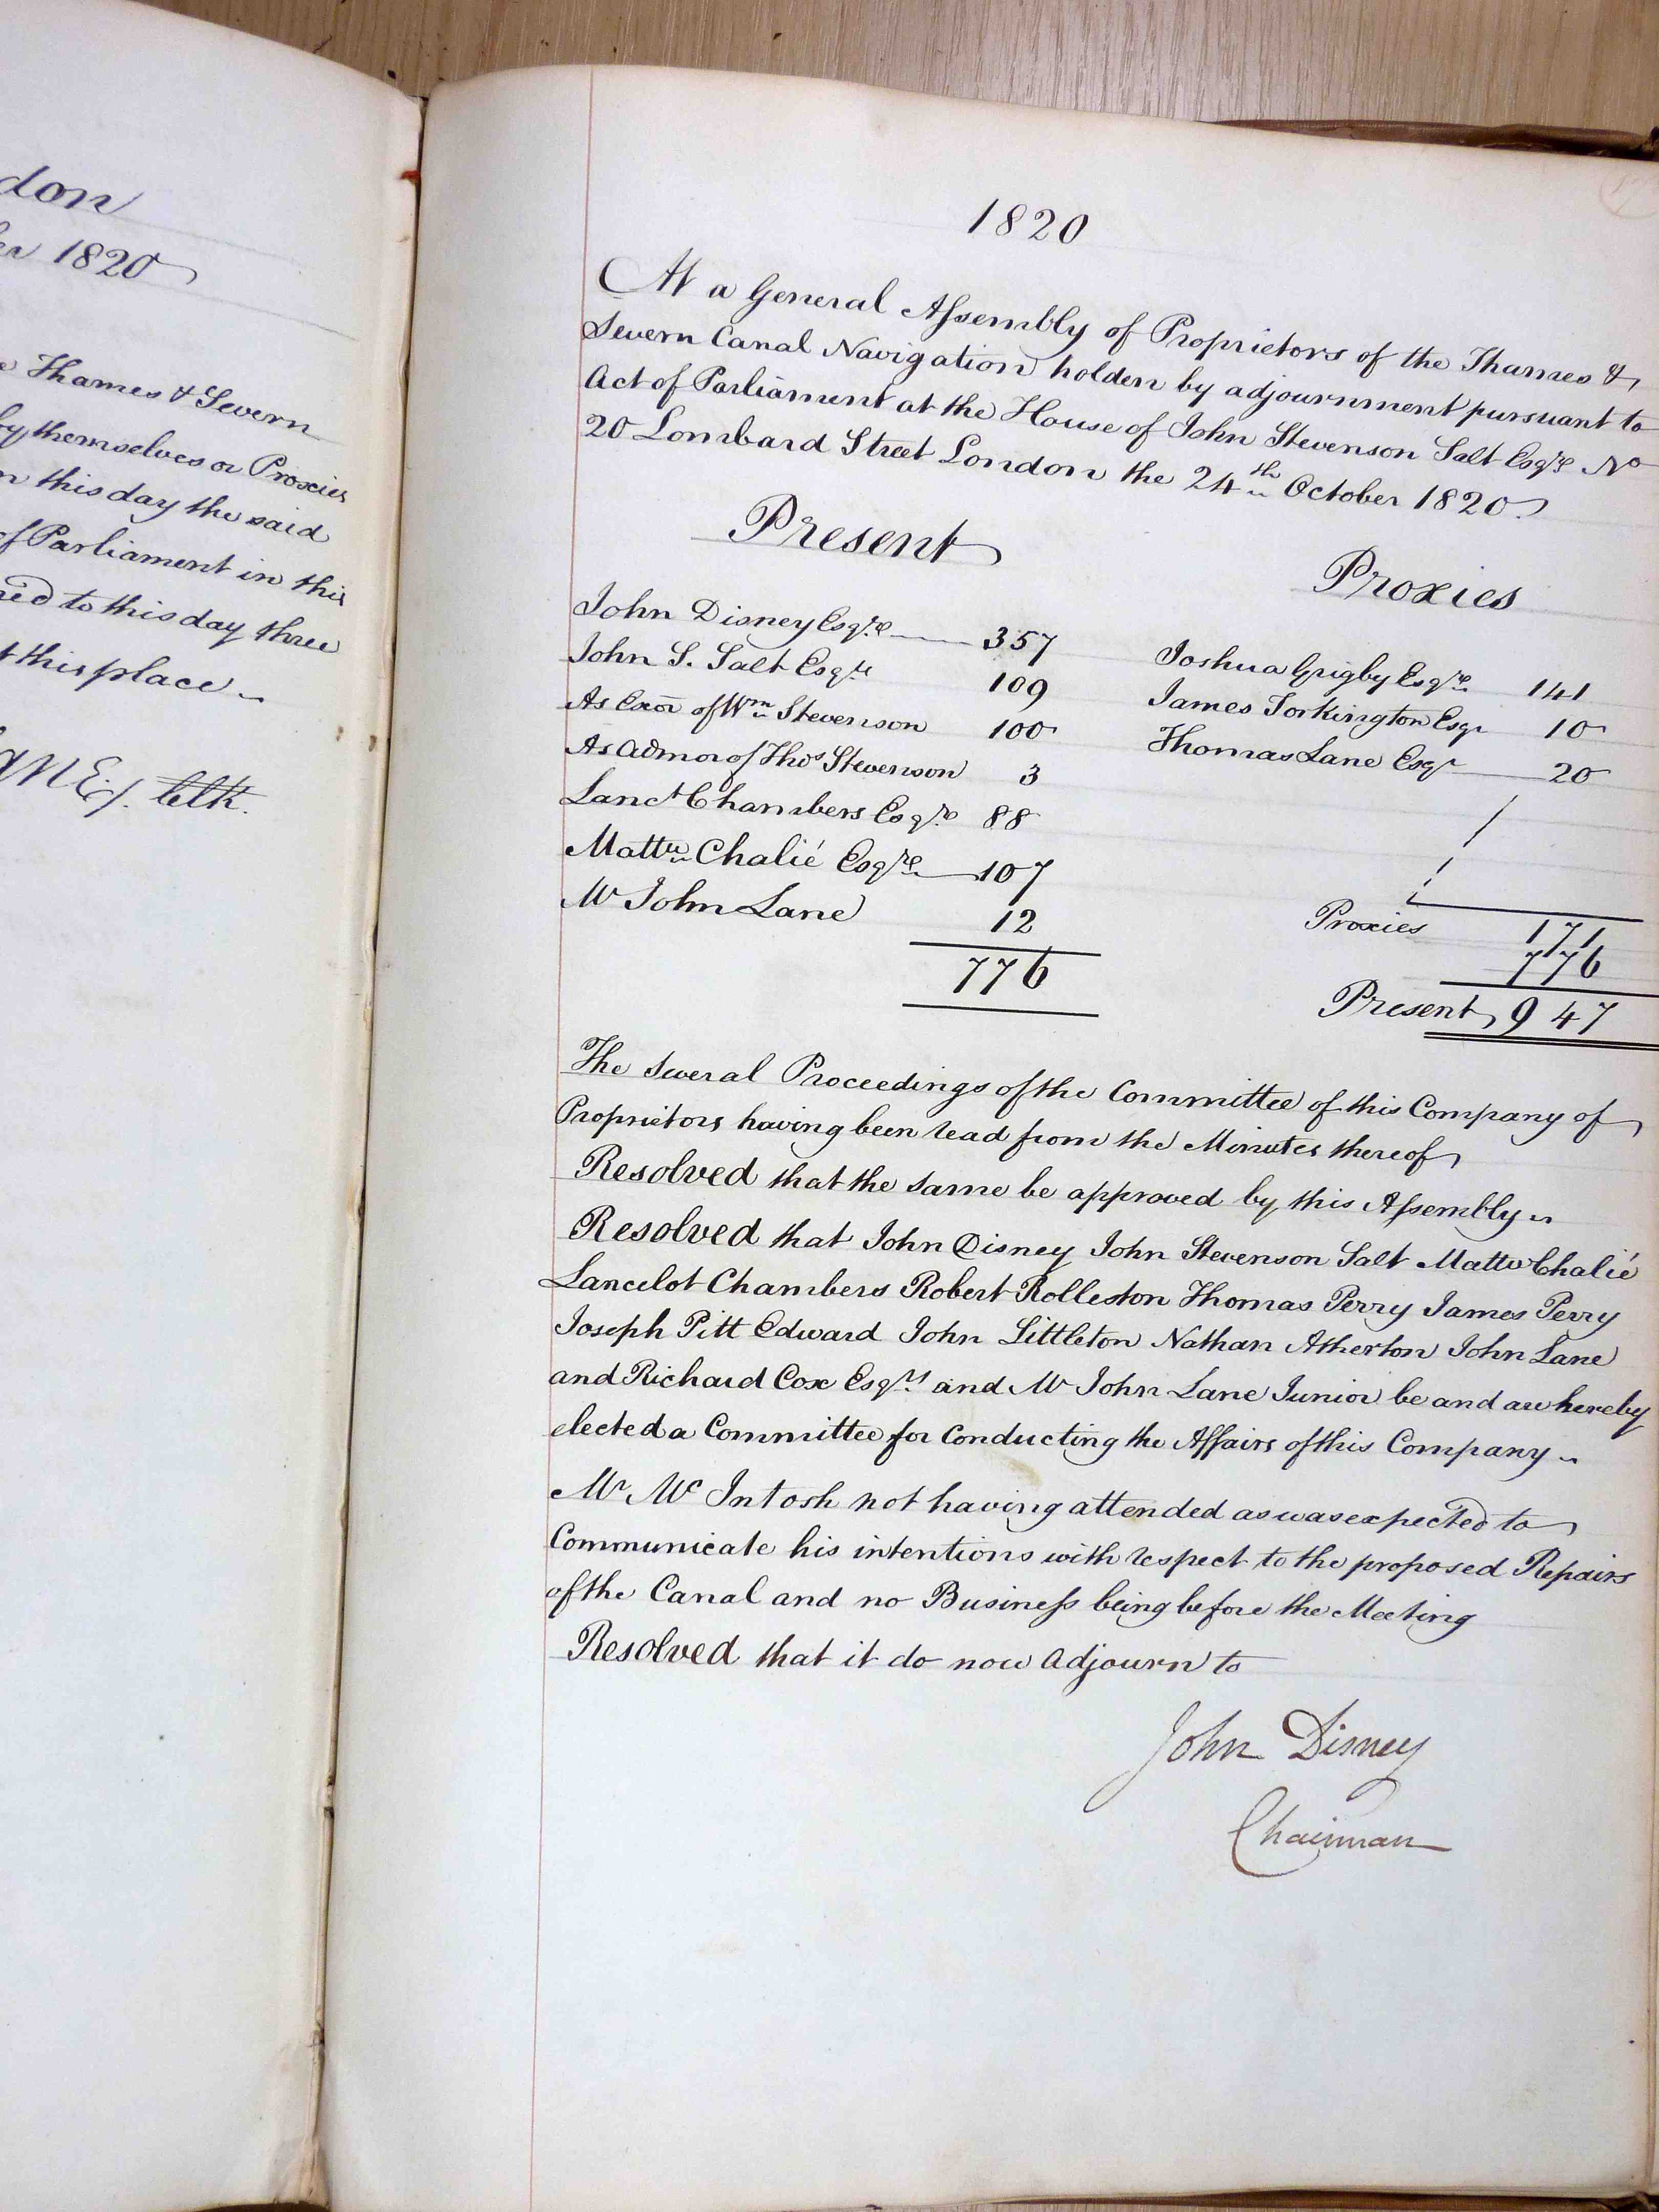 don
er 1820
Thames & Severn
by themselves or Proxies
this day the said
of Parliament in this
to this day three
this place
Clk.
1820
At a General Assembly of Proprietors of the Thames &
Severn Canal Navigation holden by adjournment pursuant to
Act of Parliament at the House of John Stevenson Salt Esqre No
20 Lombard Street London the 24th October 1820
Present
John Disney Esqre 357
John S. Salt Esqre 109
As Exor of Wm Stevenson 100
As Admor of Thos Stevenson 3
Lanct Chambers Esqre 88
Mattw Chalié Esqre 107
Mr John Lane 12
776
Proxies
Joshua Grigby Esqre 141
James Torkington Esqr 10
Thomas Lane Esqr 20
Proxies 171
776
Present 947
The several Proceedings of the Committee of this Company of
Proprietors having been read from the Minutes thereof
Resolved that the same be approved by this Assembly
Resolved that John Disney John Stevenson Salt Mattw Chalié
Lancelot Chambers Robert Rolleston Thomas Perry James Perry
Joseph Pitt Edward John Littleton Nathan Atherton John Lane
and Richard Cox Esqrs and Mr John Lane Junior be and are hereby
elected a Committee for Conducting the Affairs of this Company
Mr McIntosh not having attended as was expected to
Communicate his intentions with respect to the proposed Repairs
of the Canal and no Business being before the Meeting
Resolved that it do now Adjourn to
John Disney
Chairman